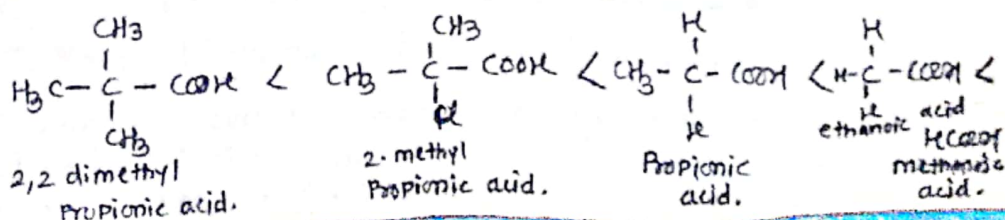 CH3 CH3 H H
H3C - C - COOH < CH3 - C - COOH < CH3 - C - COOH < H - C - COOH <
CH3 H H H
2,2 dimethyl propionic acid.
2-methyl propionic acid.
Propionic acid.
ethanoic acid
HCOOH
methanoic acid.